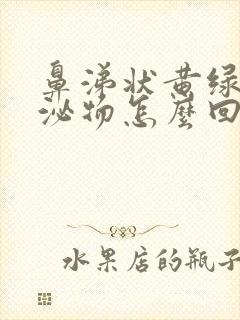 鼻涕状黄绿
泌物怎麼回
水果店的瓶子